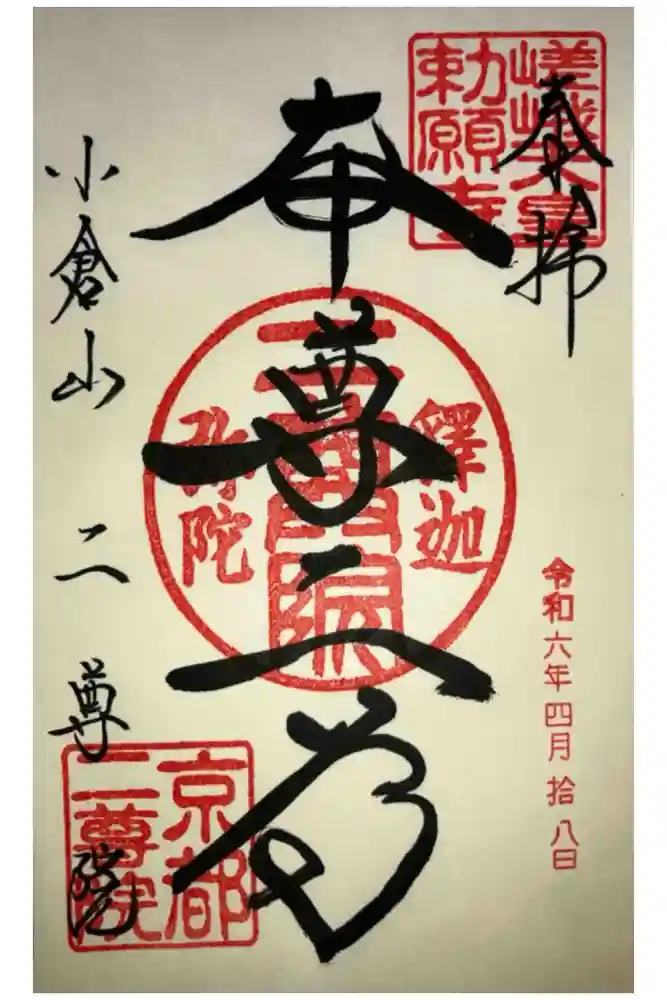 奉拝
嵯峨天皇
勅願寺
令和六年四月拾八日
本尊二尊
釋迦
二尊院
弥陀
小倉山 二尊院
京都
二尊院